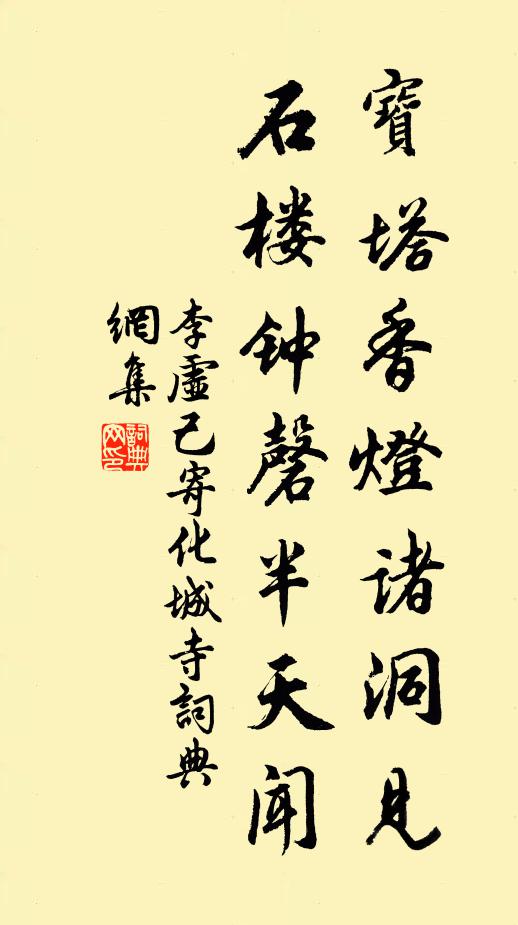 寶塔香燈诸洞見
石楼钟磬半天闻
李虛己寄化城寺詞典
網集
詞典
网印